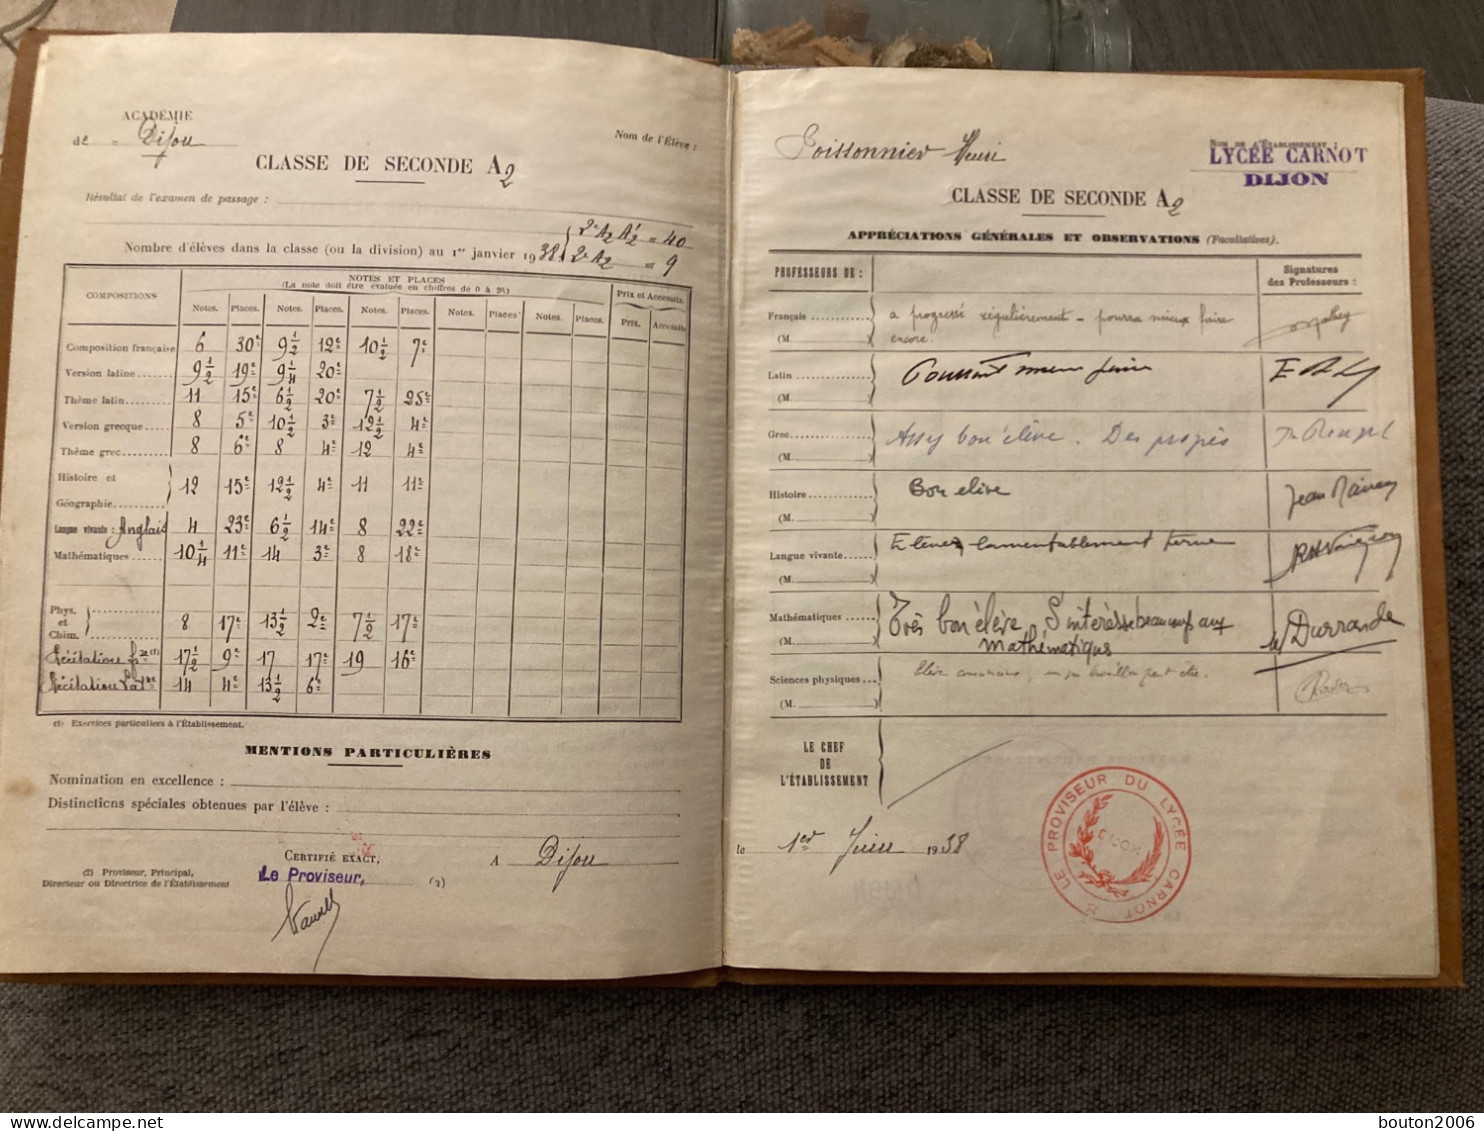 ACADÉMIE
de Dijon
Nom de l'Élève :
CLASSE DE SECONDE A2
Résultat de l'examen de passage :
Nombre d'élèves dans la classe (ou la division) au 1er janvier 1938 { 2e A2 A'2 = 40
2e A2 = 9
COMPOSITIONS
NOTES ET PLACES
(La note doit être évaluée en chiffres de 0 à 20.)
Prix et Accessits.
Notes. Places. Notes. Places. Notes. Places. Notes. Places. Notes. Places. Prix. Accessits
Composition française 6 30e 9 1/2 12e 10 1/2 7e
Version latine 9 1/2 19e 9 1/4 20e
Thème latin 11 15e 6 1/2 20e 7 1/2 25e
Version grecque 8 5e 10 1/2 3e 12 1/2 4e
Thème grec 8 6e 8 4e 12 4e
Histoire et
Géographie 12 15e 12 1/2 4e 11 11e
Langue vivante : Anglais 4 23e 6 1/2 14e 8 22e
Mathématiques 10 1/4 11e 14 3e 8 18e
Phys.
et
Chim. 8 17e 13 1/2 2e 7 1/2 17e
Récitation fr se (1) 17 1/2 9e 17 17e 19 16e
Récitation Lat ne 14 4e 13 1/2 6e
(1) Exercices particuliers à l'Établissement.
MENTIONS PARTICULIÈRES
Nomination en excellence :
Distinctions spéciales obtenues par l'élève :
CERTIFIÉ EXACT,
A Dijon
Le Proviseur, (2)
(2) Proviseur, Principal,
Directeur ou Directrice de l'Établissement
Poissonnier Henri
NOM DE L'ÉTABLISSEMENT :
LYCÉE CARNOT
DIJON
CLASSE DE SECONDE A2
APPRÉCIATIONS GÉNÉRALES ET OBSERVATIONS (Facultatives).
PROFESSEURS DE :
Signatures
des Professeurs :
Français
a progressé régulièrement - pourra mieux faire
encore.
(M.
Latin
Pourrait mieux faire
(M.
Grec
Assez bon élève. Des progrès
(M.
Histoire
Bon élève
Jean
(M.
Langue vivante
Elève lamentablement terne
(M.
Mathématiques
Très bon élève. S'intéresse beaucoup aux
mathématiques
Durrande
(M.
Sciences physiques
Elève consciencieux, un peu brouillon peut être.
(M.
LE CHEF
DE
L'ÉTABLISSEMENT
le 1er Juin 1938
LE PROVISEUR DU LYCÉE CARNOT
DIJON
delcampe.net
bouton2006